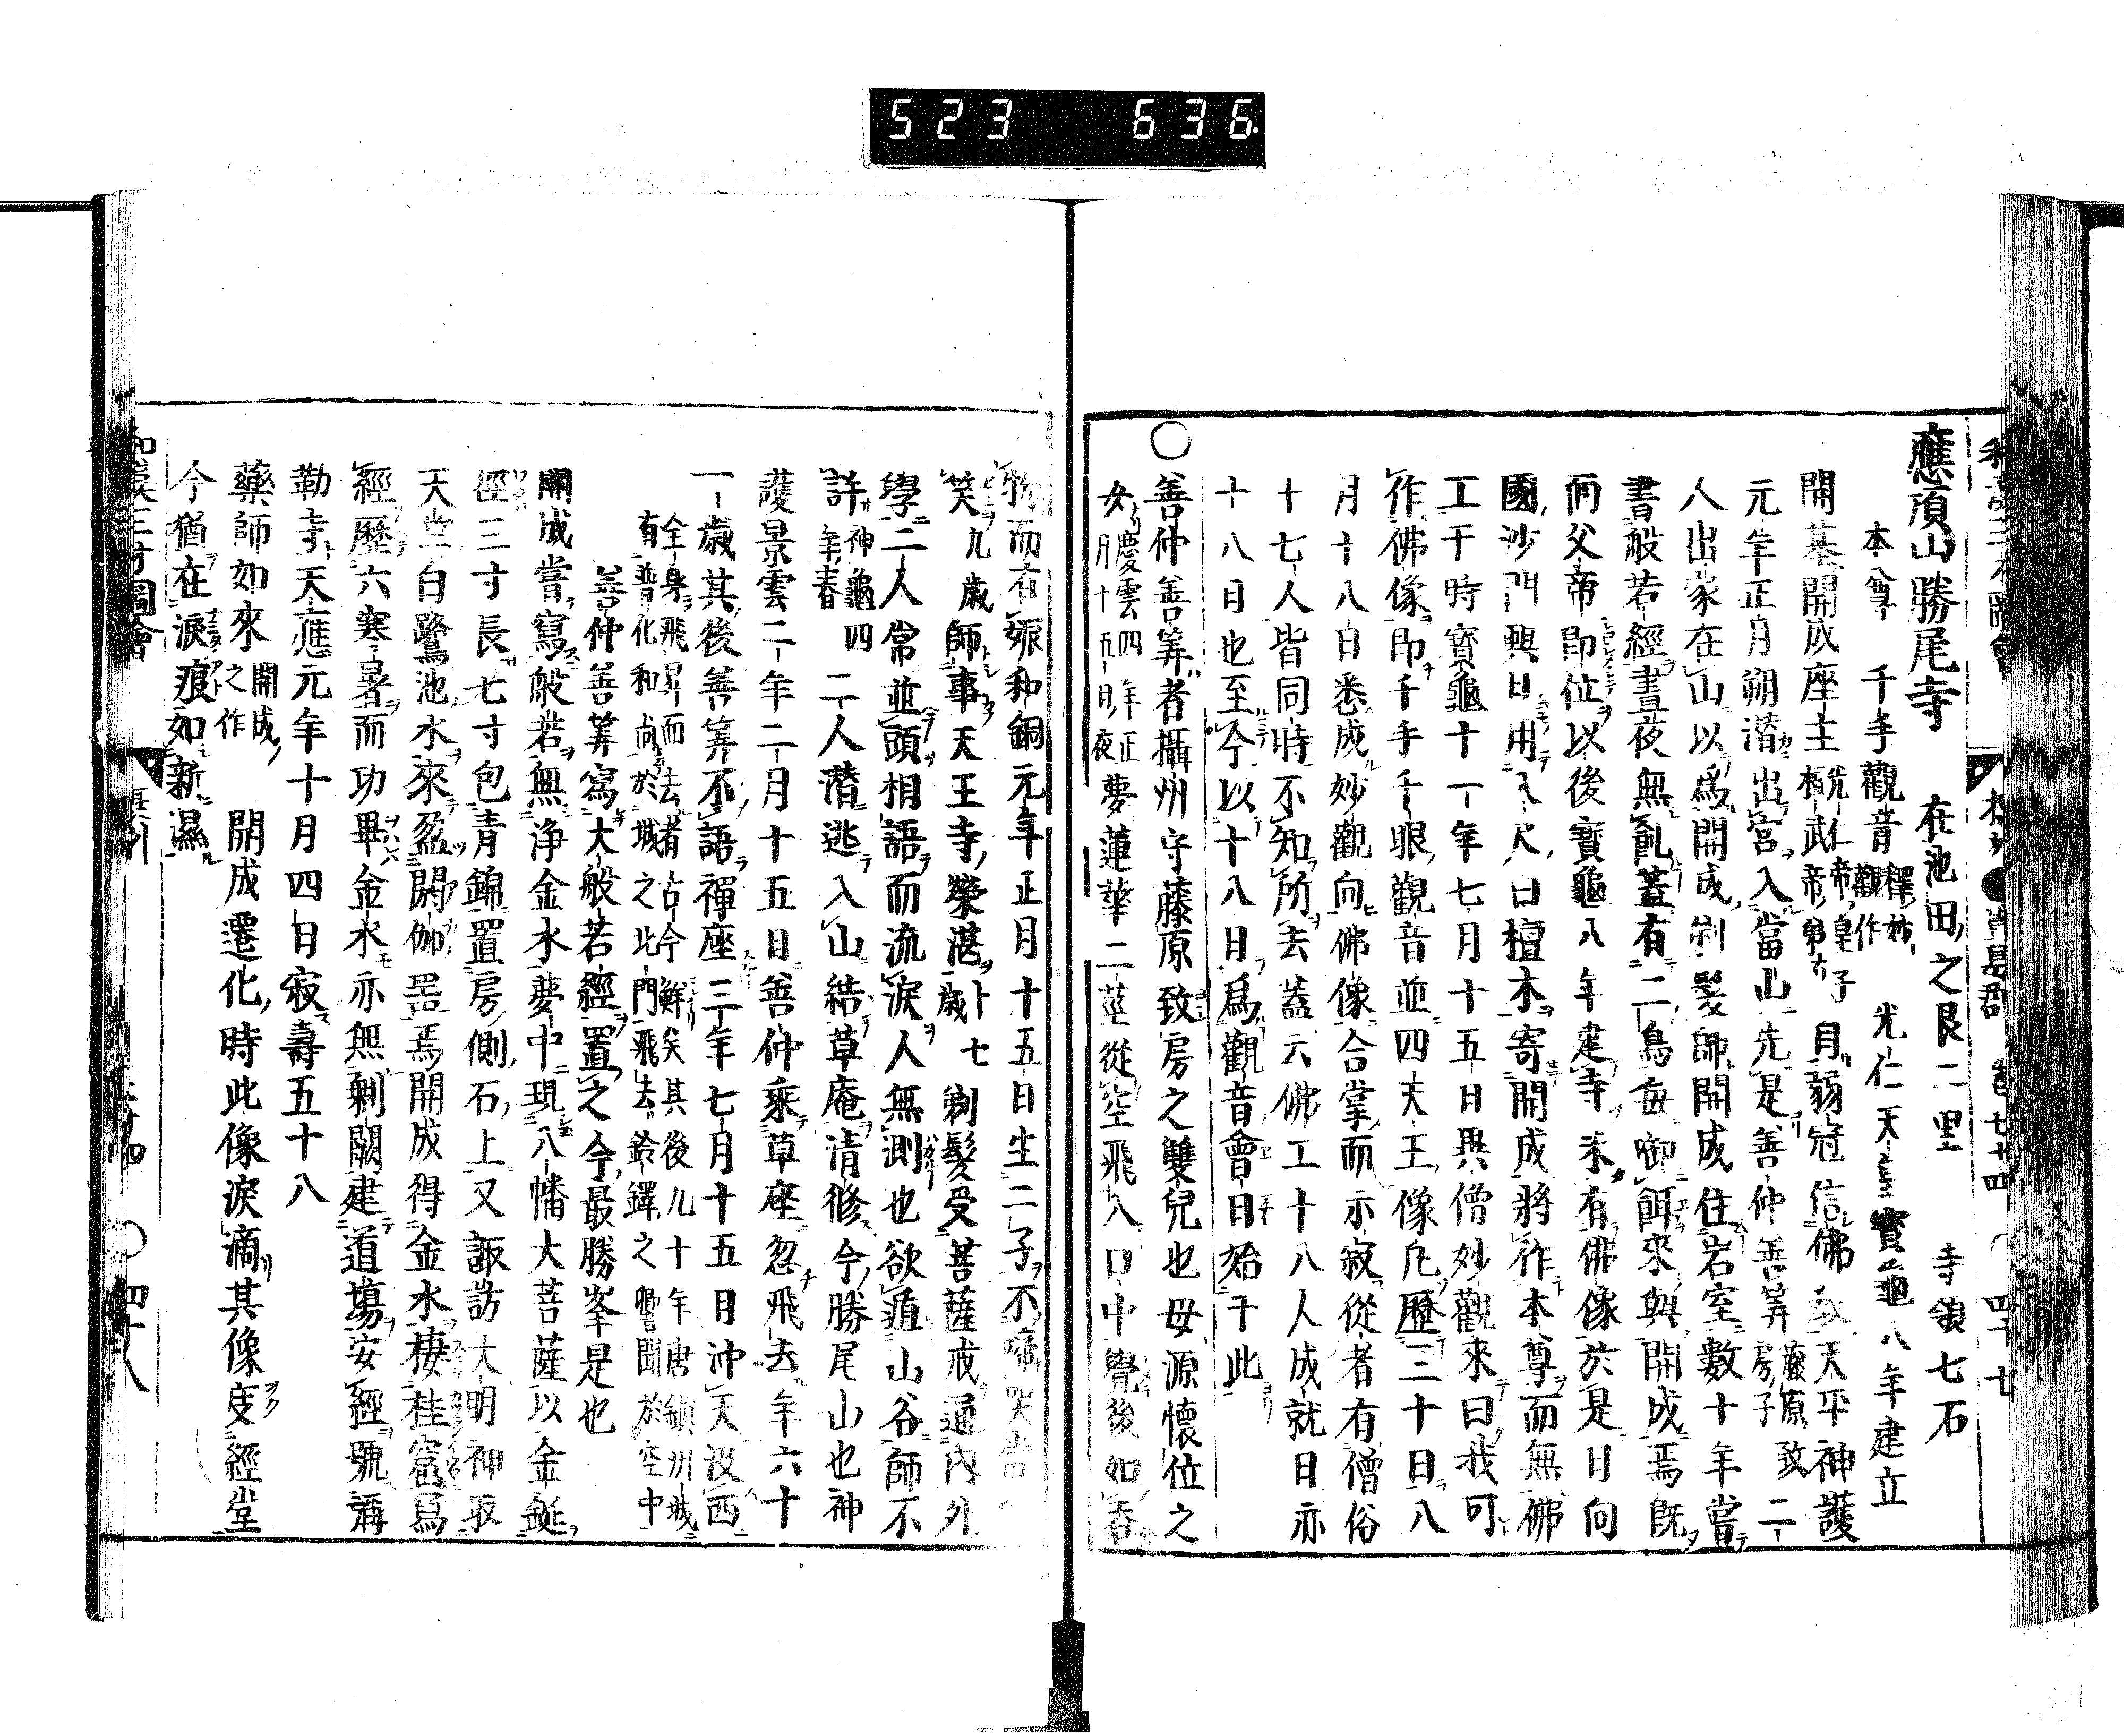 523 636
應頂山勝尾寺 在池田之艮二里 寺領七石
本尊 千手觀音 釋妙觀作 光仁天皇寶龜八年建立
開基開成座主 光仁帝皇子桓武帝弟 自弱冠信佛 天平神護
元年正月朔潛出宮入當山先是善仲善筭 藤原致房子 二
人出家在山以爲開成剃髮師開成住岩室數十年嘗
書般若經晝夜無飢蓋有二鳥每啣餌來與開成焉既
而父帝即位以後寶龜八年建寺未有佛像於是日向
國沙門興日用八尺白檀木寄開成將作本尊而無佛
工干時寶龜十一年七月十五日異僧妙觀來曰我可
作佛像即千手千眼觀音並四天王像凡歷三十日八
月十八日悉成妙觀向佛像合掌而示寂從者有僧俗
十七人皆同時不知所去蓋云佛工十八人成就日亦
十八日也至今以十八日爲觀音會日始于此
○善仲善筭者攝州守藤原致房之雙兒也母源懷位之
女慶雲四年正月十五日夜夢蓮華二莖從空飛入口中覺後如吞
物而有娠和銅元年正月十五日生二子不啼哭常
笑九歲師事天王寺榮湛 十七歲 剃髮受菩薩戒通內外
學二人常並頭相語而流淚人無測也欲遁山谷師不
許 神龜四年春 二人潛逃入山結草庵清修今勝尾山也神
護景雲二年二月十五日善仲乘草座忽飛去年六十
一歲其後善筭不語禪座三年七月十五日沖天沒西
全身飛昇而去者古今鮮矣其後九十年唐鎮州城
有普化和尚於城之北門飛去鈴鐸之響聞於空中
善仲善筭寫大般若經置之今最勝峯是也
開成嘗寫般若無淨金水夢中現八幡大菩薩以金鋌
徑三寸長七寸包青錦置房側石上又諏訪大明神取
天竺白鷺池水來盈閼伽器焉開成得金水棲桂窟寫
經歷六寒暑而功畢金水亦無剩闕建道場安經號彌
勒寺天應元年十月四日寂壽五十八
藥師如來 開成之作 開成遷化時此像淚滴其像
今猶在淚痕如新濕
四十八